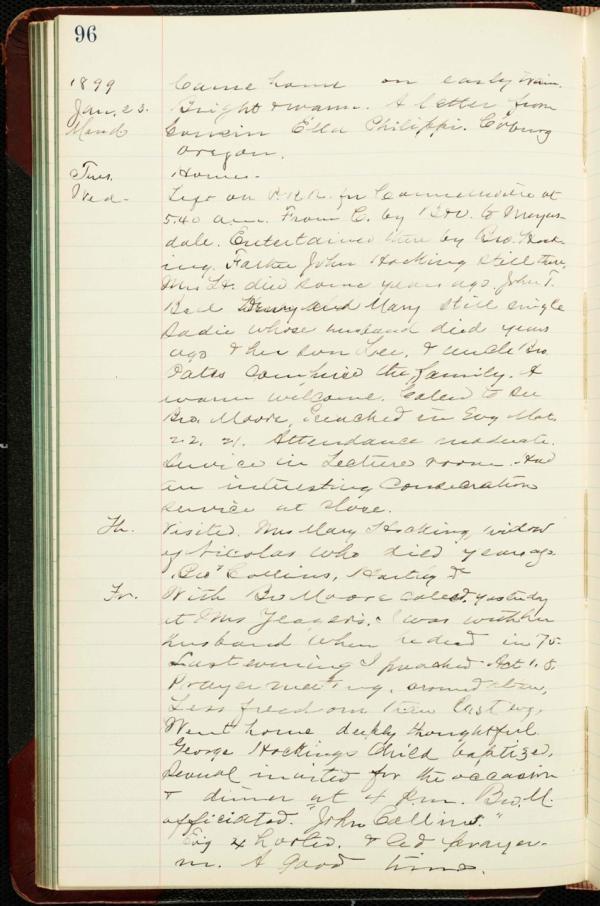 96
1899 Came home on early train.
Jan. 23. Bright & warm. A letter from
Mond Cousin Ella Philippi. Coburg
Oregon.
Tues. Home.
Wed. Left on P.R.R. for Connellsville at
5.40 a.m. From C. by B&O. to Meyers-
dale. Entertained there by Bro. Hock-
ing. Father John Hocking still there,
Mrs H. died some years ago. John T.
Henry and Mary still single
Sadie whose husband died years
ago & her son & uncle Bro.
Oates comprise the family. A
warm welcome. Called to see
Bro. Moore. Preached in Evg Mat.
22. 21. Attendance moderate.
Service in Lecture room. Had
an interesting Consecration
service at close.
Th. Visited. Mrs Mary Hocking, widow
of Nicolas who died years ago.
Collins, &c
Fr. With Bro Moore called yesterday
at Mrs Yeager's. I was with her
husband when he died in 75.
Last evening I preached Act 1.8.
Prayer meeting, around altar,
Less freedom than last evg.
Went home deeply thoughtful.
George Hockings Child baptized.
Several invited for the occasion
& dinner at 4 p.m. Bro. M.
officiated. "John Collins."
Evg & led prayer-
m. A good time.